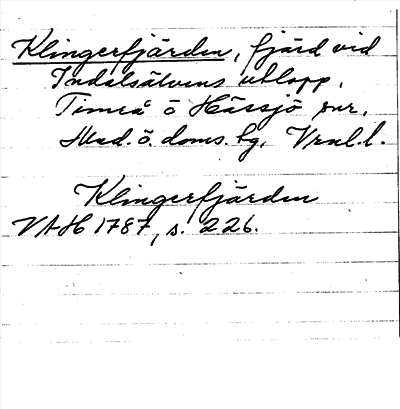 Klingerfjärden, fjärd vid
Indalsälvens utlopp,
Timrå o Hässjö snr,
Med. ö. doms. bg, Vrnl. l.
Klingerfjärden
VAH 1787, s. 226.